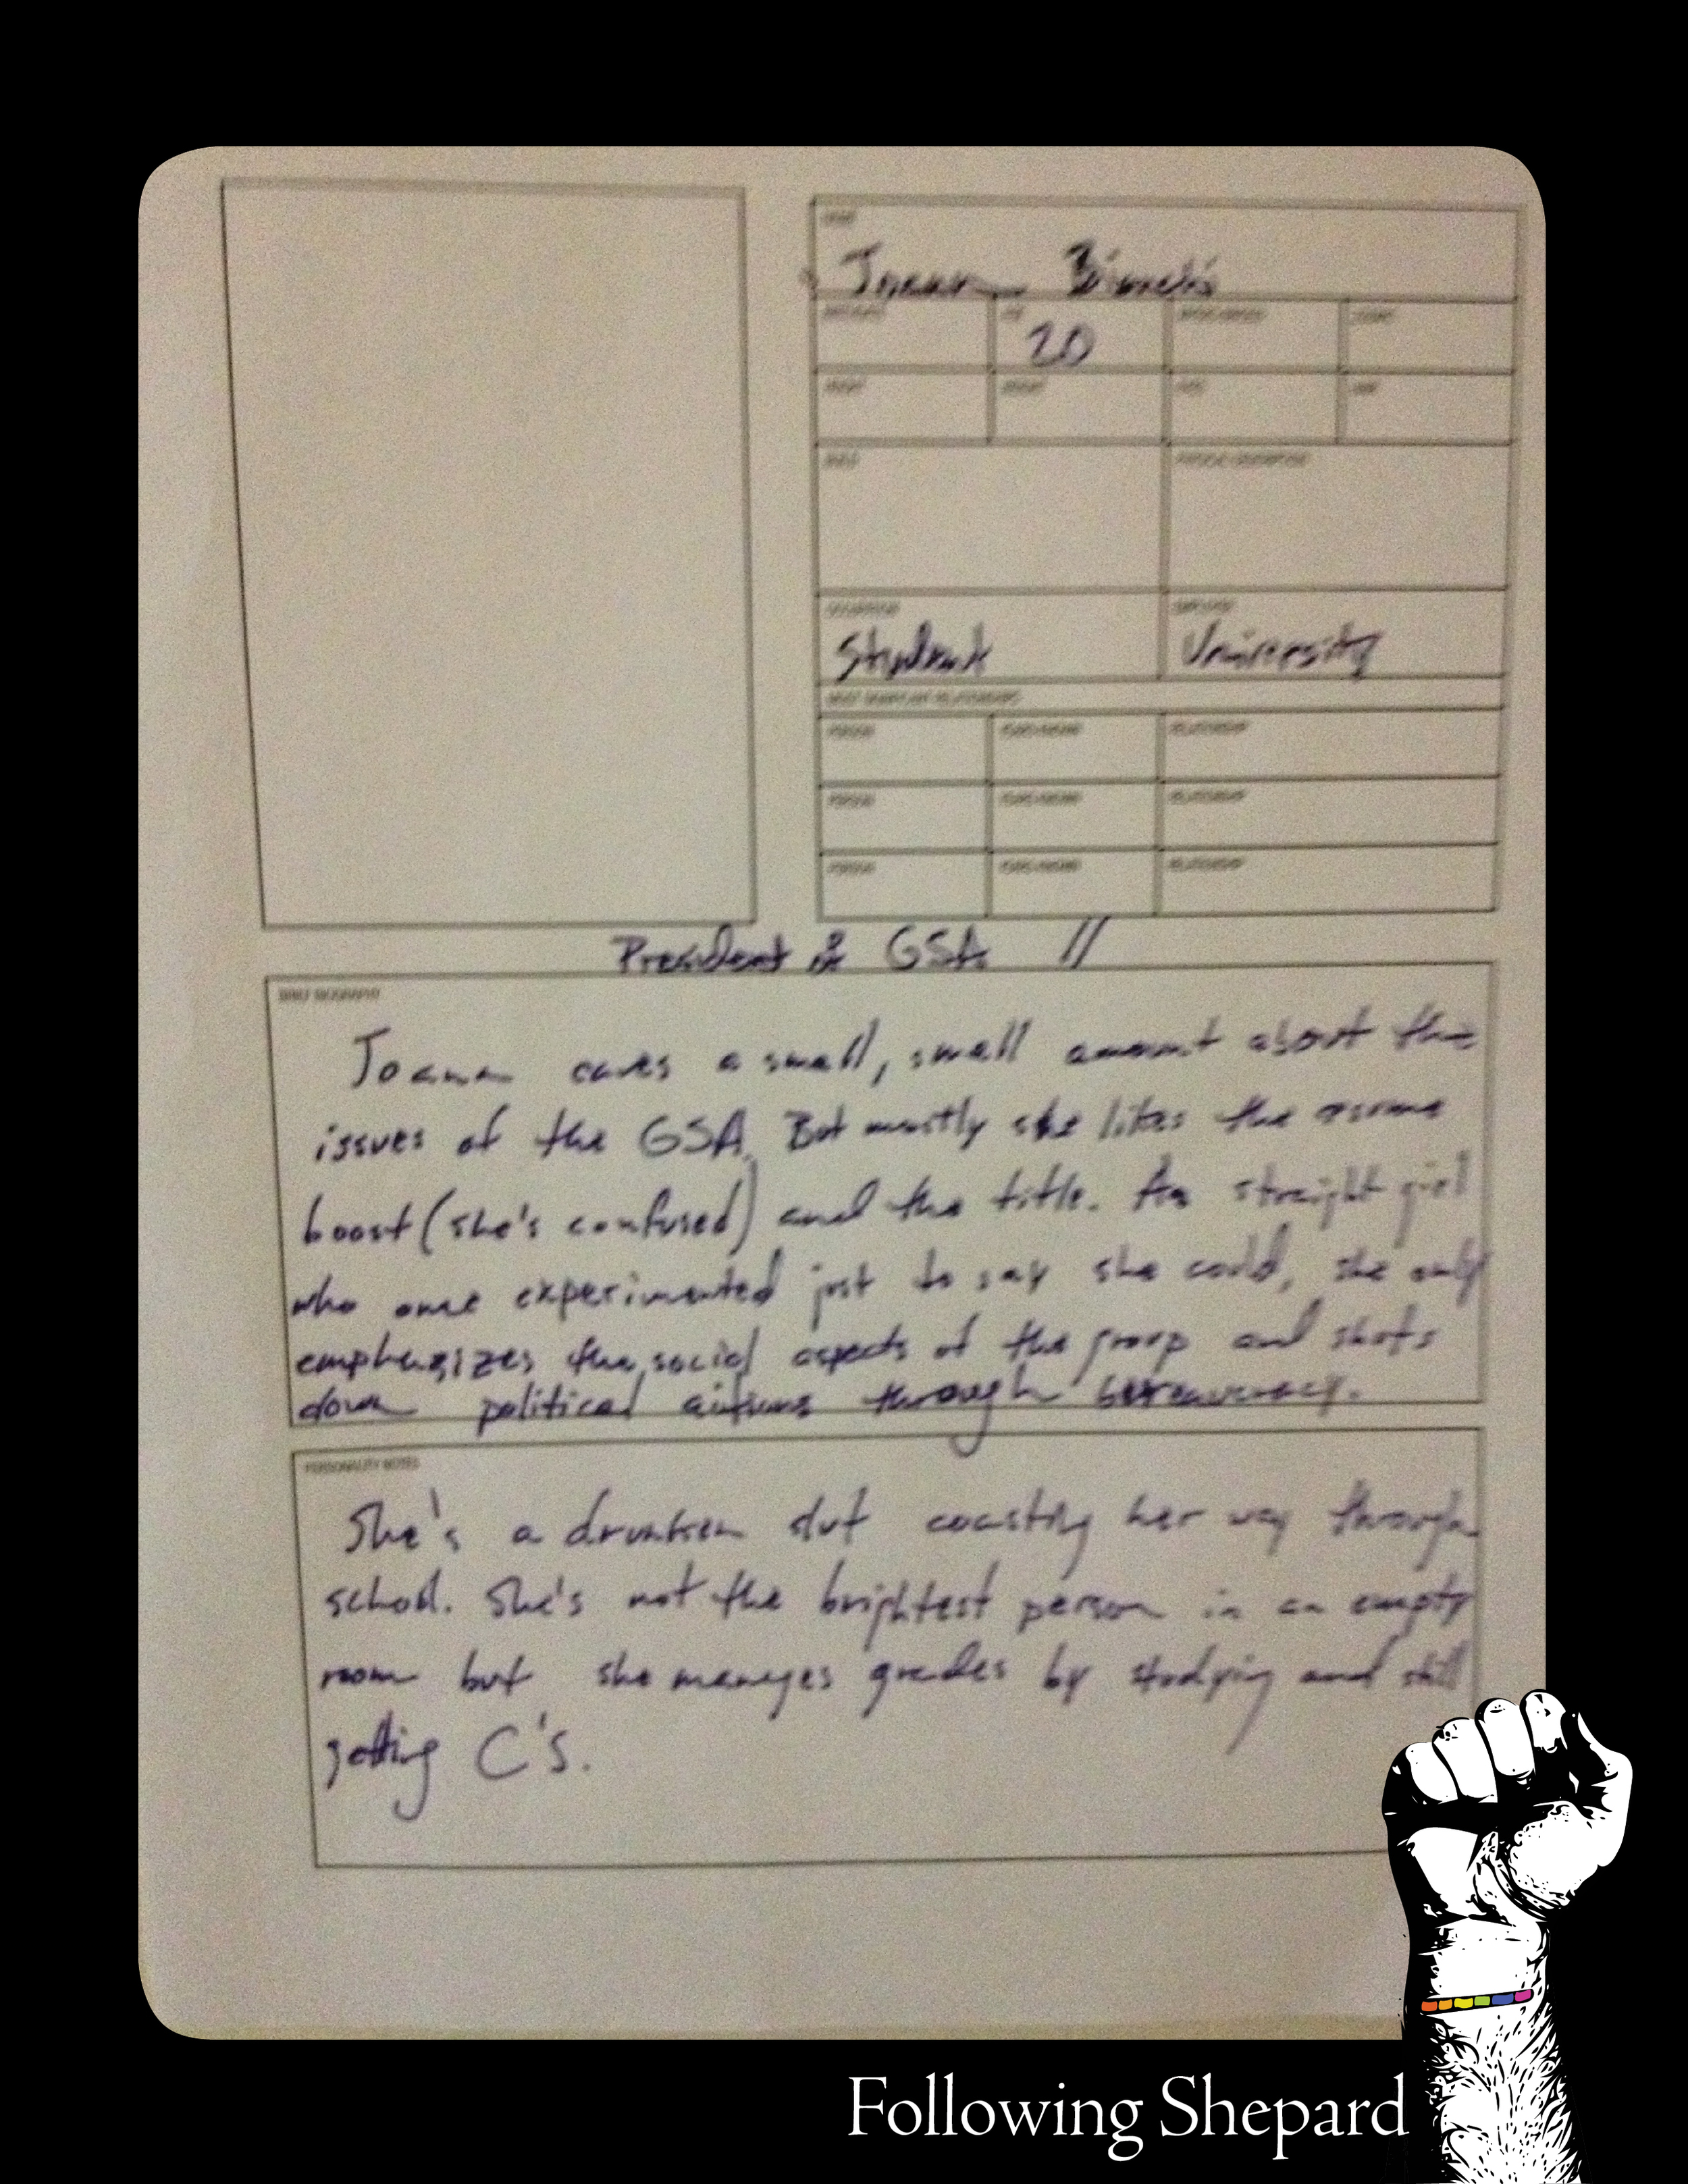 Joann Bianchi
20
Student
University
PERSON
RELATIONSHIP
PERSON
RELATIONSHIP
PERSON
RELATIONSHIP
President of GSA //
BRIEF BIOGRAPHY
Joann cares a small, small amount about the
issues of the GSA. But mostly she likes the resume
boost (she's confused) and the title. As straight girl
who once experimented just to say she could, she only
emphasizes the social aspects of the group and shots
down political actions through bureaucracy.
PERSONALITY NOTES
She's a drunken slut coasting her way through
school. She's not the brightest person in an empty
room but she manages grades by studying and still
getting C's.
Following Shepard